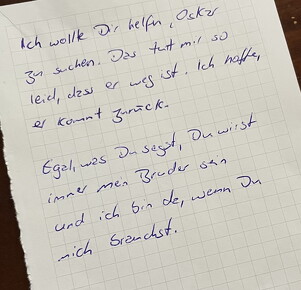 Ich wollte Dir helfen, Oskar
zu suchen. Das tut mir so
leid, dass er weg ist. Ich hoffe,
er kommt zurück.
Egal, was Du sagst, Du wirst
immer mein Bruder sein
und ich bin da, wenn Du
mich brauchst.